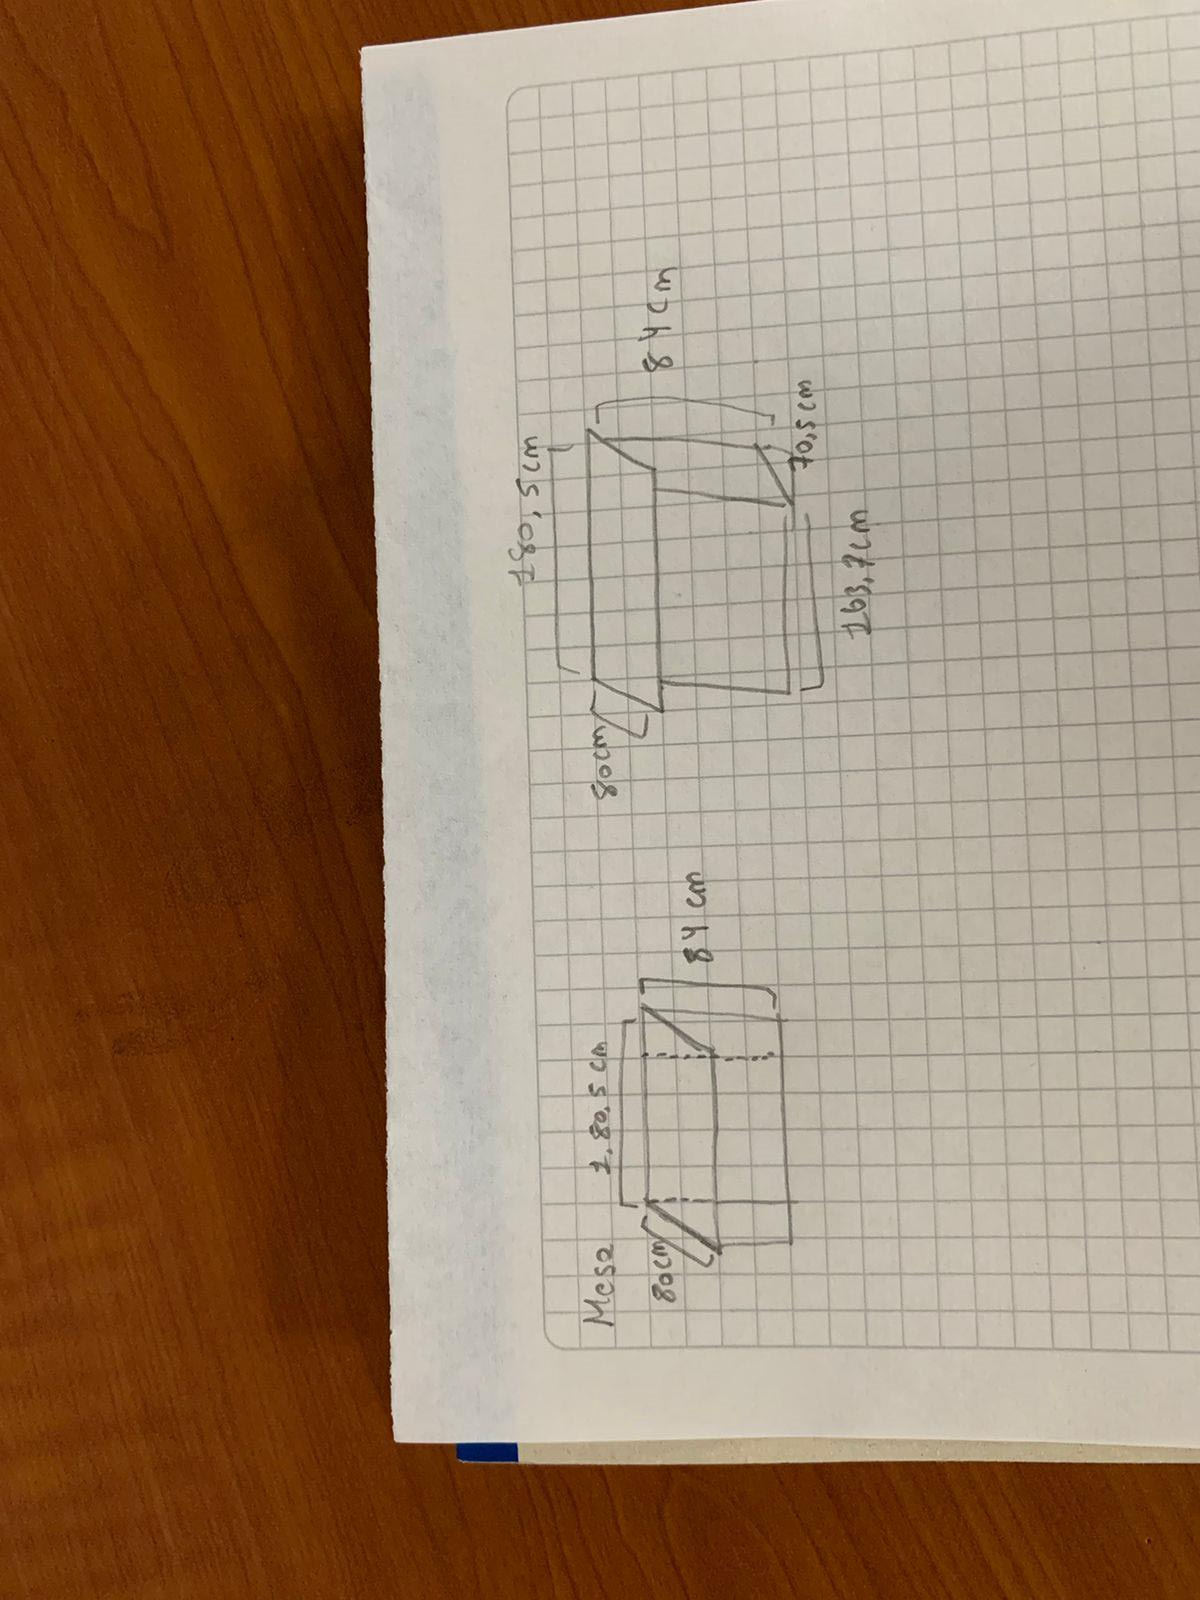 Mesa
1.80,5 cm
80cm
84 cm
180,5cm
80cm
84cm
70,5cm
163,7cm